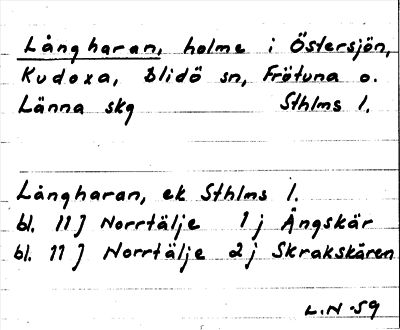 Långharan, holme i Östersjön,
Kudoxa, Blidö sn, Frötuna o.
Länna skg Sthlms l.
Långharan, ek Sthlms l.
bl. 11 J Norrtälje 1 j Ångskär
bl. 11 J Norrtälje 2 j Skrakskären
L.N -59